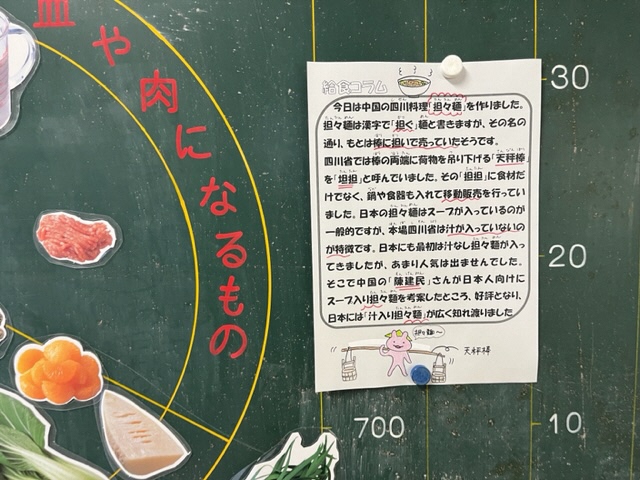 血や肉になるもの
給食コラム
今日は中国の四川料理「担々麺」を作りました。
担々麺は漢字で「担ぐ」麺と書きますが、その名の
通り、もとは棒に担いで売っていたそうです。
四川省では棒の両端に荷物を吊り下げる「天秤棒」
を「担担」と呼んでいました。その「担担」に食材だ
けでなく、鍋や食器も入れて移動販売を行ってい
ました。日本の担々麺はスープが入っているのが
一般的ですが、本場四川省は汁が入っていないの
が特徴です。日本にも最初は汁なし担々麺が入っ
てきましたが、あまり人気は出ませんでした。
そこで中国の「陳建民」さんが日本人向けに
スープ入り担々麺を考案したところ、好評となり、
日本には「汁入り担々麺」が広く知れ渡りました
担々麺〜
天秤棒
30
20
10
700